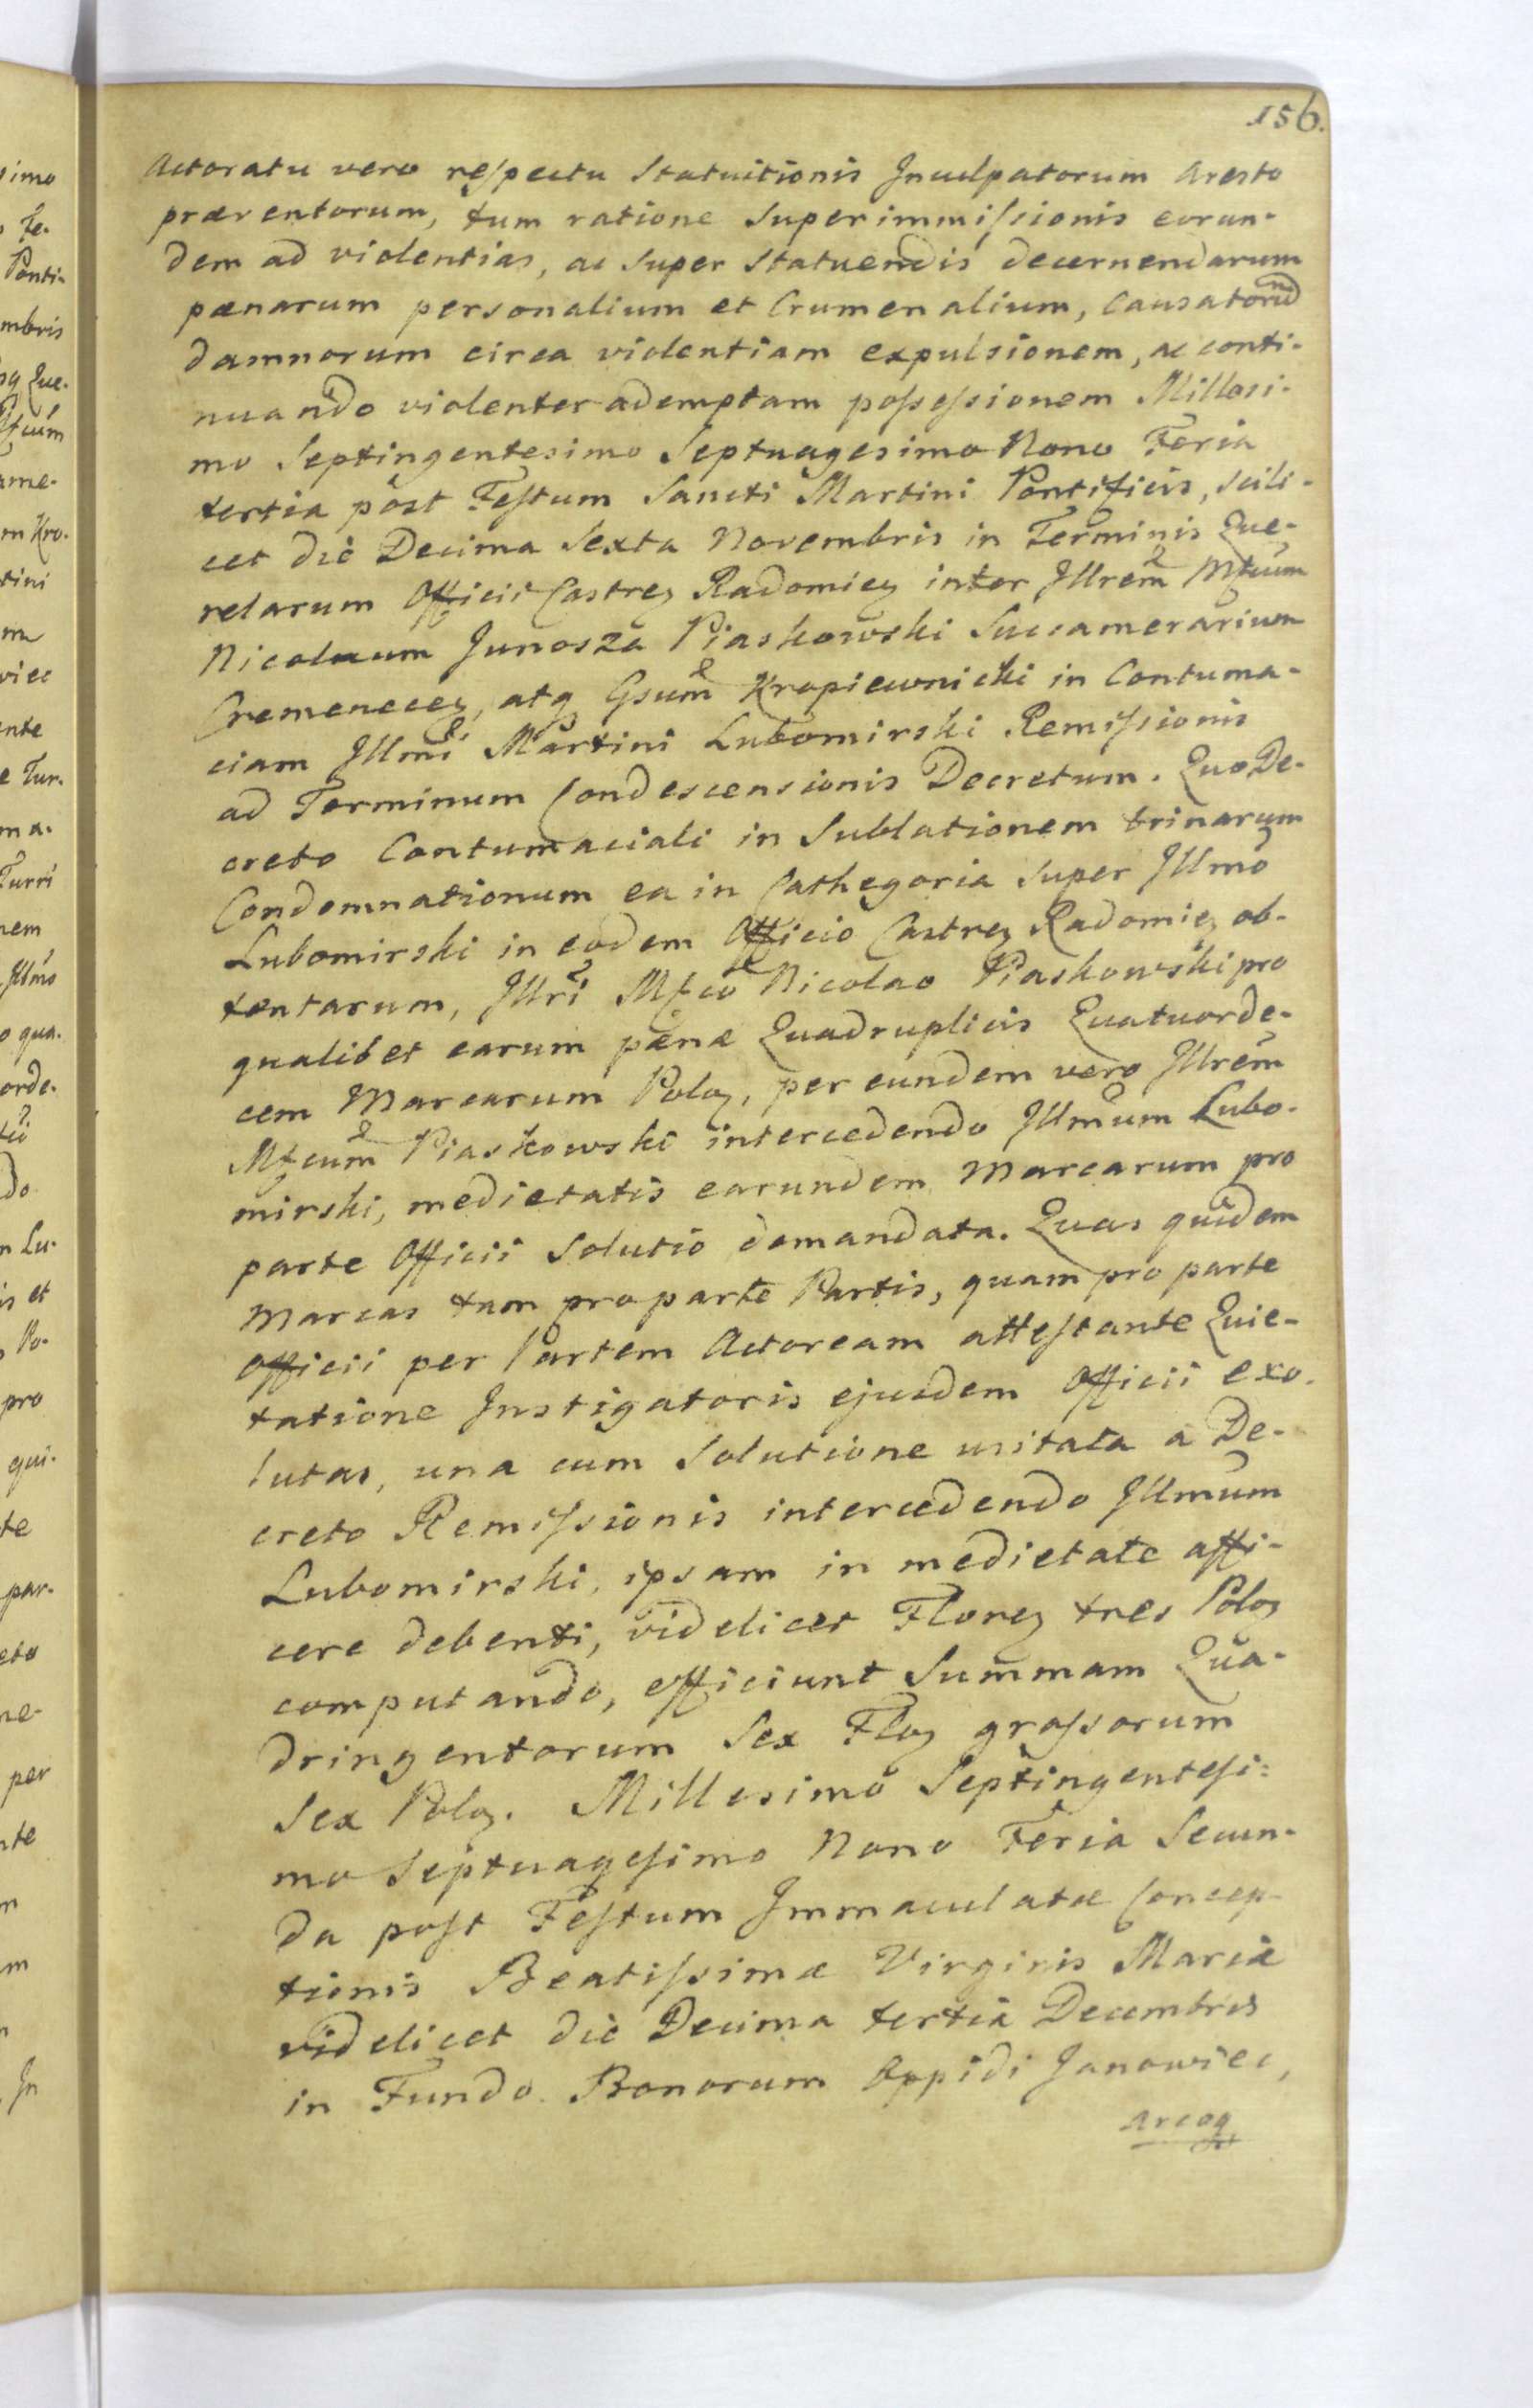 156.
Actoratu vero respectu Statuitionis Inculpatorum Aresto
præventorum, tum ratione Superimmissionis eorun-
dem ad violentias, ac super Statuendis decernendarum
pænarum personalium et Crumenalium, Causatorũ
damnorum circa violentiam expulsionem, ac conti-
nuando violenter ademptam possessionem Millesi-
mo Septingentesimo Septuagesimo Nono Feria
tertia post Festum Sancti Martini Pontificis, scili-
cet die Decima Sexta Novembris in Terminis Que-
relarum Officii Castreꝫ Radomieꝫ inter Illrem̃ Mfcum̃
Nicolaum Junosza Piaskowski Succamerarium
Cremeneceꝫ, atqꝫ Gsum̃ Kropiewnicki in Contuma-
ciam Illmĩ Martini Lubomirski Remissionis
ad Terminum Condescensionis Decretum. Quo De-
creto Contumaciali in Sublationem trinarum
Condemnationum ea in Cathegoria super Illmõ
Lubomirski in eodem Officio Castreꝫ Radomieꝫ ob-
tentarum, Illrĩ Mfcõ Nicolao Piaskowski pro
qualibet earum pænæ Quadruplicis Quatuorde-
cem Marcarum Poloꝫ, per eundem vero Illrem̃
Mfcum̃ Piaskowski intercedendo Illmum̃ Lubo-
mirski, medietatis earundem Marcarum pro
parte Officii Solutio demandata. Quas quidem
Marcas tam pro parte Partis, quam pro parte
Officii per Partem Actoream attestante Quie-
tatione Instigatoris ejusdem Officii exo-
lutas, una cum Solutione usitata a De-
creto Remissionis intercedendo Illmum̃
Lubomirski, ipsam in medietate affi-
cere debenti, videlicet Floreꝫ tres Poloꝫ
computando, efficiunt Summam Qua-
dringentorum Sex Floꝫ grossorum
Sex Poloꝫ. Millesimo Septingentesi=
mo Septuagesimo Nono Feria Secun-
da post Festum Immaculatæ Concep-
tionis Beatissimæ Virginis Mariæ
videlicet die Decima tertia Decembris
in Fundo Bonorum Oppidi Janowiec,
Arcoqꝫ